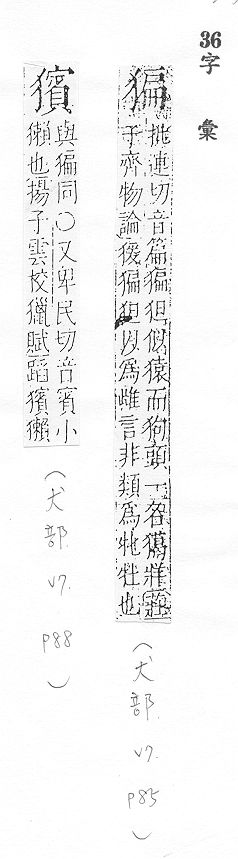 36
字彙
猵
批連切音篇猵狙似猿而狗頭一名獦牂莊
子齊物論猨猵狙以為雌言非類為牝牡也
（犬部. v7. p85）
獱
與猵同○又卑民切音賓小
獺也揚子雲校獵賦蹈獱獺
（犬部. v7. p88）